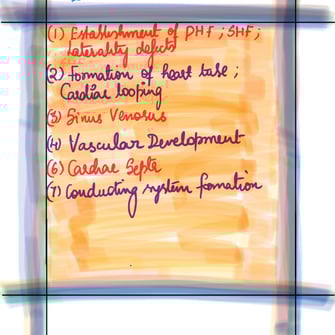 (1) Establishment of PHF ; SHF ;
Laterality defects
(2) Formation of heart tube ;
Cardiac looping
(3) Sinus Venosus
(4) Vascular Development
(6) Cardiac Septa
(7) Conducting system formation